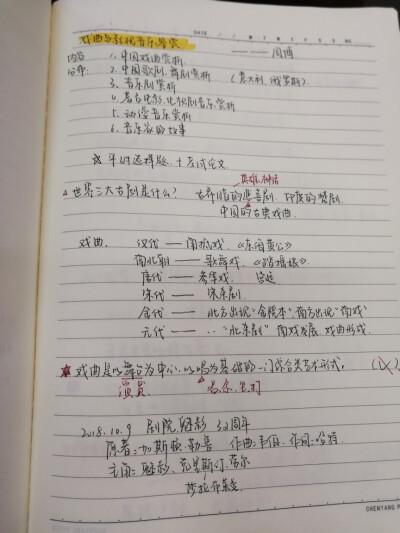 DATE
戏曲与影视音乐鉴赏 ——周博
内容 1. 中国戏曲赏析
分布: 2. 中国歌剧、舞剧赏析 (意大利、俄罗斯)
3. 音乐剧赏析
4. 著名电影、电视剧音乐赏析
5. 动漫音乐赏析
6. 音乐家的故事
平时选择题 + 考试论文
英雄、神话
△世界三大古剧是什么? 古希腊的悲喜剧、印度的梵剧
中国的古典戏曲.
戏曲. 汉代 —— 角抵戏.《东海黄公》
南北朝 —— 歌舞戏.《踏摇娘》
唐代 —— 参军戏. 宫廷
宋代 —— 宋杂剧
金代 —— 北方出现"金院本" 南方出现"南戏"
元代 —— "北杂剧" 南戏发展. 戏曲形成.
戏曲是以舞台为中心,以唱为基础的一门综合类艺术形式. (×)
演员
2018.10.9 剧院魅影 32周年
原著:加斯顿·勒鲁 作曲:韦伯. 作词:哈特
主角:魅影、克里斯汀、劳尔
莎拉布莱曼
CHENYANG P